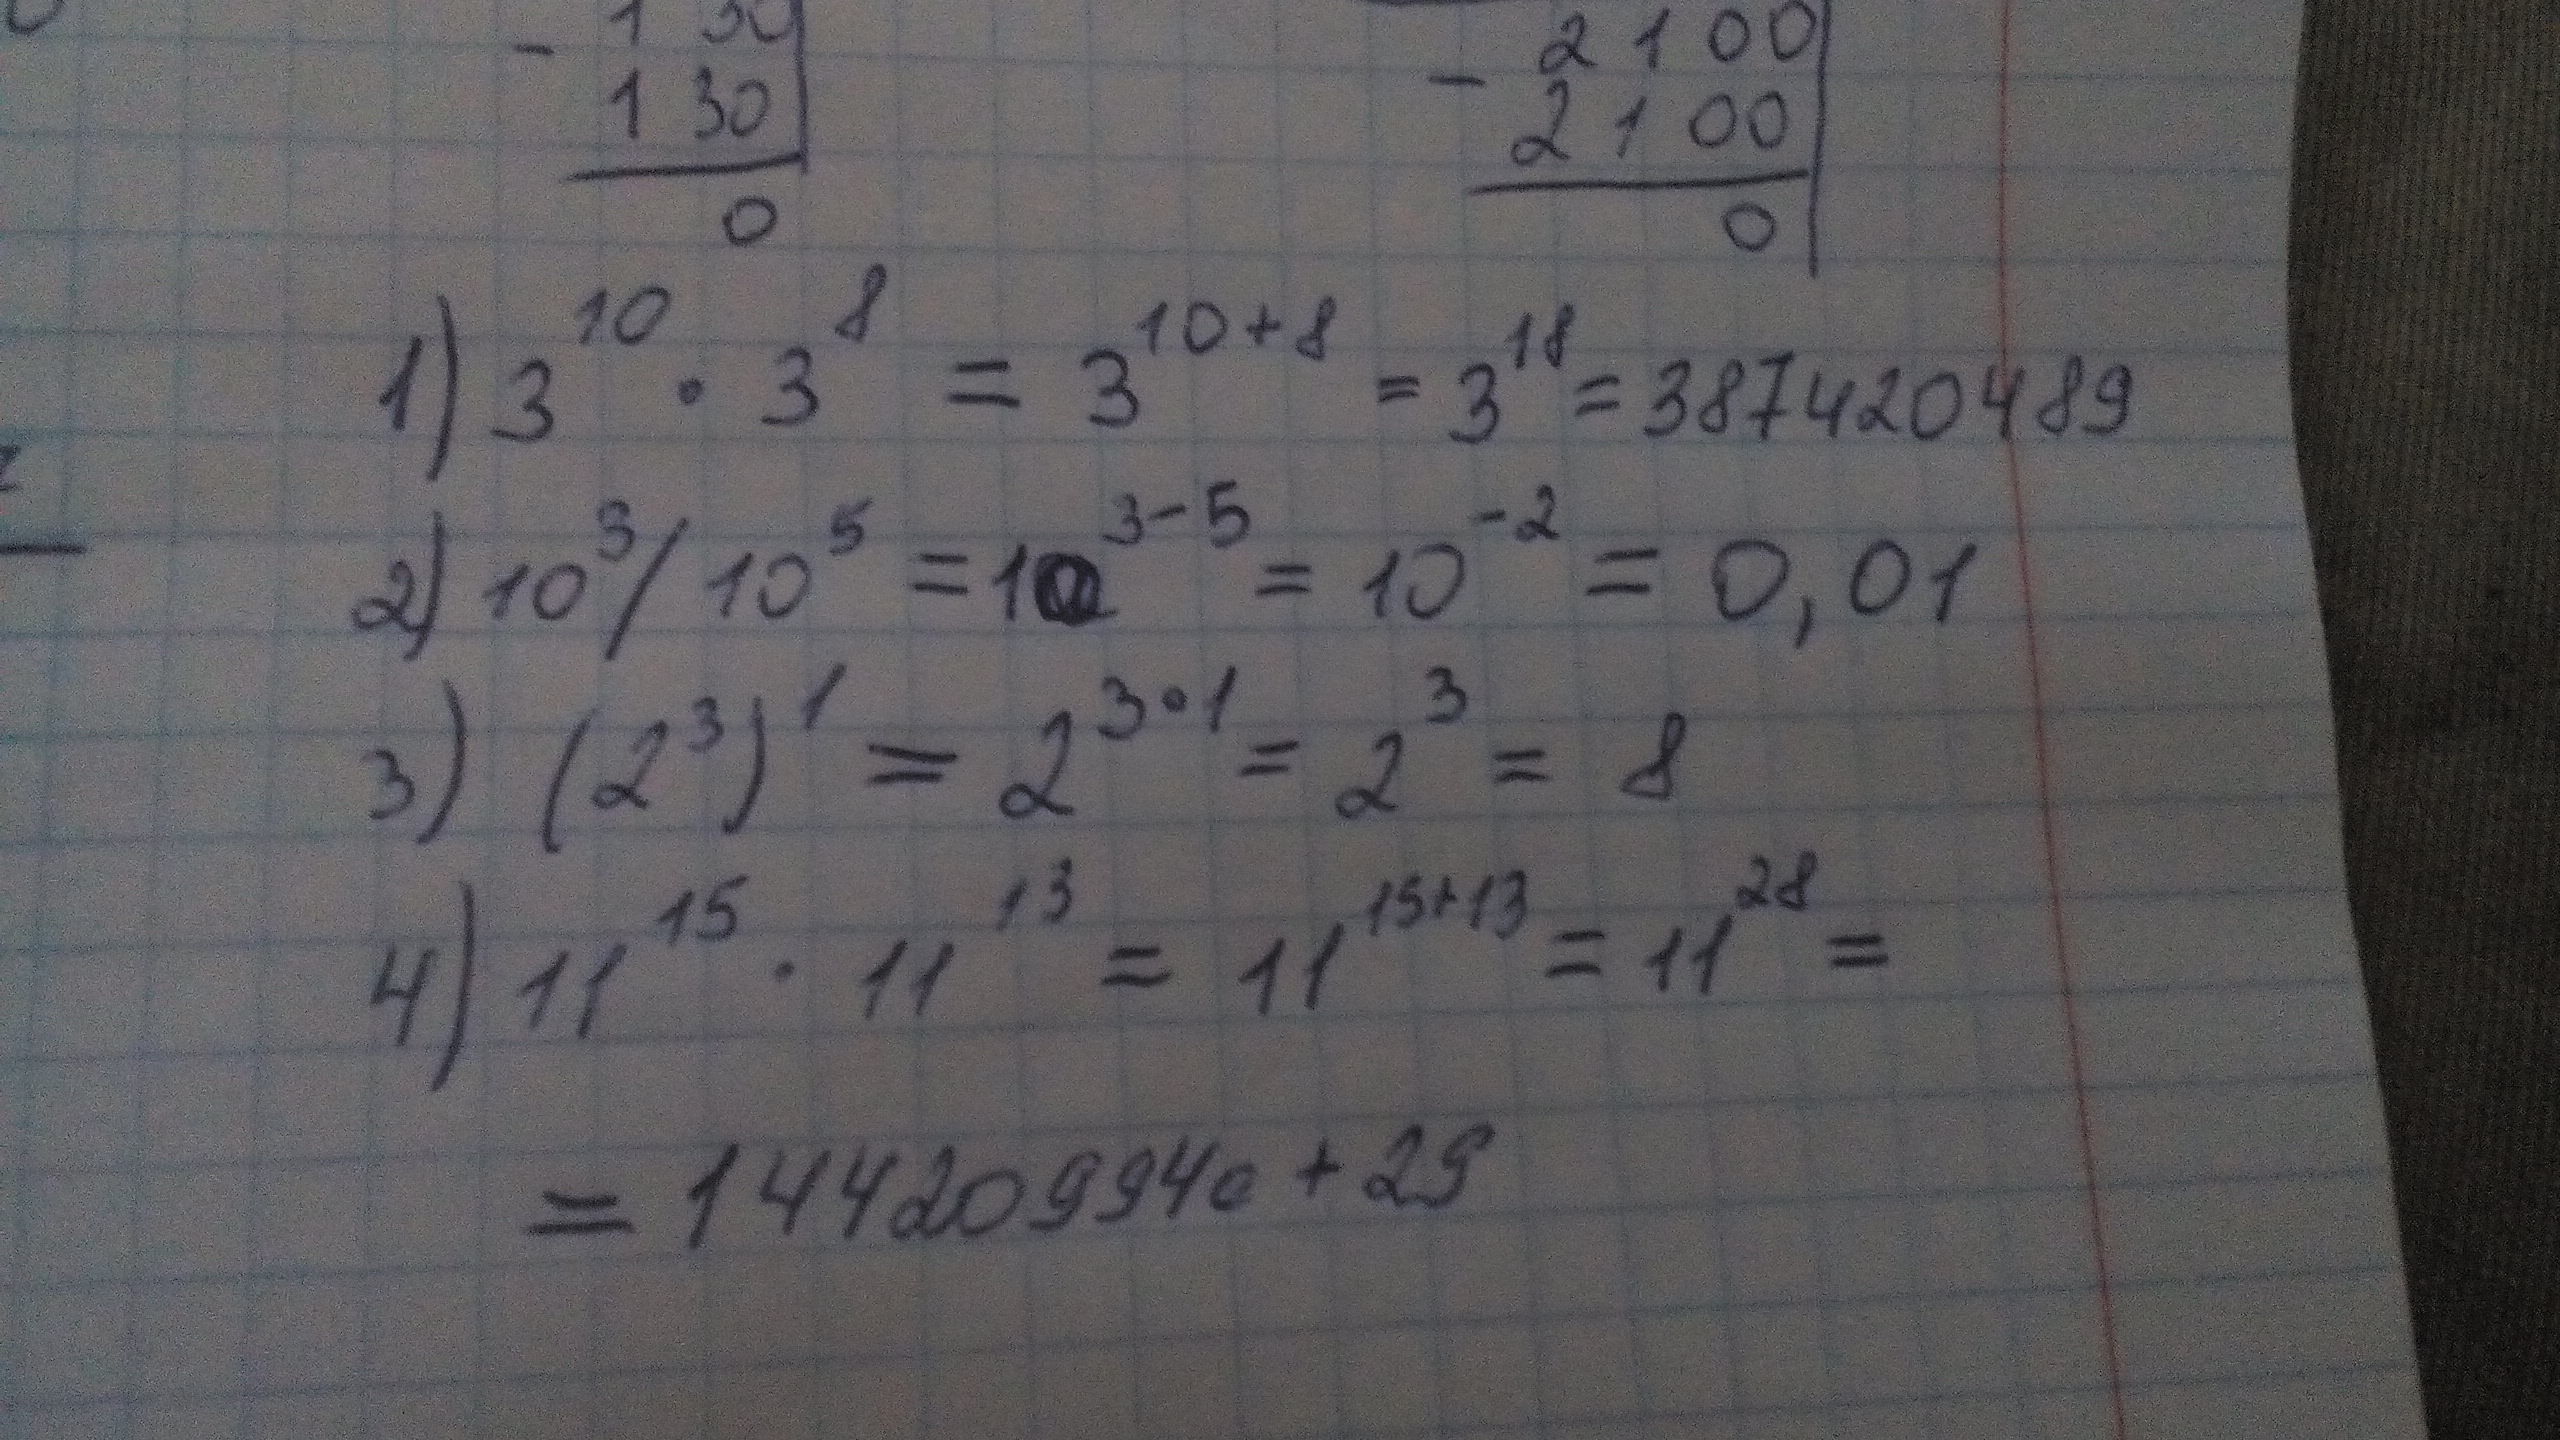 - 1 30 2100
130 - 2100
0 0
1) 3^10 · 3^8 = 3^10+8 = 3^18 = 387420489
2) 10^3 / 10^5 = 10^3-5 = 10^-2 = 0,01
3) (2^3)^1 = 2^3·1 = 2^3 = 8
4) 11^15 · 11^13 = 11^15+13 = 11^28 =
= 144209940 + 29